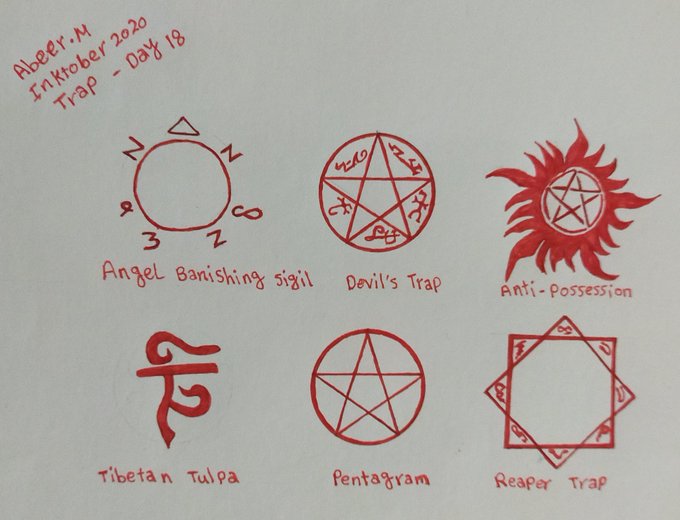 Abeer.M
Inktober 2020
Trap - Day 18
Angel Banishing Sigil
Devil's Trap
Anti-Possession
Tibetan Tulpa
Pentagram
Reaper Trap